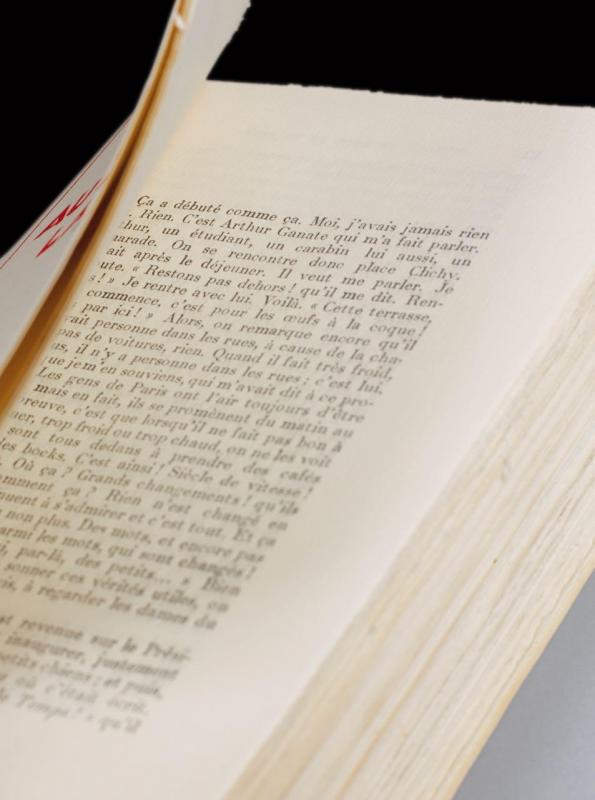 Ça a débuté comme ça. Moi, j'avais jamais rien
. Rien. C'est Arthur Ganate qui m'a fait parler.
hur, un étudiant, un carabin lui aussi, un
arade. On se rencontre donc place Clichy.
ait après le déjeuner. Il veut me parler. Je
ute. « Restons pas dehors ! qu'il me dit. Ren-
s ! » Je rentre avec lui. Voilà. « Cette terrasse,
commence, c'est pour les œufs à la coque !
par ici ! » Alors, on remarque encore qu'il
ait personne dans les rues, à cause de la cha-
pas de voitures, rien. Quand il fait très froid,
us, il n'y a personne dans les rues ; c'est lui,
ue je m'en souviens, qui m'avait dit à ce pro-
Les gens de Paris ont l'air toujours d'être
mais en fait, ils se promènent du matin au
preuve, c'est que lorsqu'il ne fait pas bon à
ner, trop froid ou trop chaud, on ne les voit
sont tous dedans à prendre des cafés
les bocks. C'est ainsi ! Siècle de vitesse !
. Où ça ? Grands changements ! qu'ils
omment ça ? Rien n'est changé en
nuent à s'admirer et c'est tout. Et ça
non plus. Des mots, et encore pas
armi les mots, qui sont changés !
i, par-là, des petits... » Bien
sonner ces vérités utiles, on
is, à regarder les dames du
est revenue sur le Prési-
inaugurer, justement
petits chiens ; et puis,
où c'était écrit.
le Temps ! » qu'il